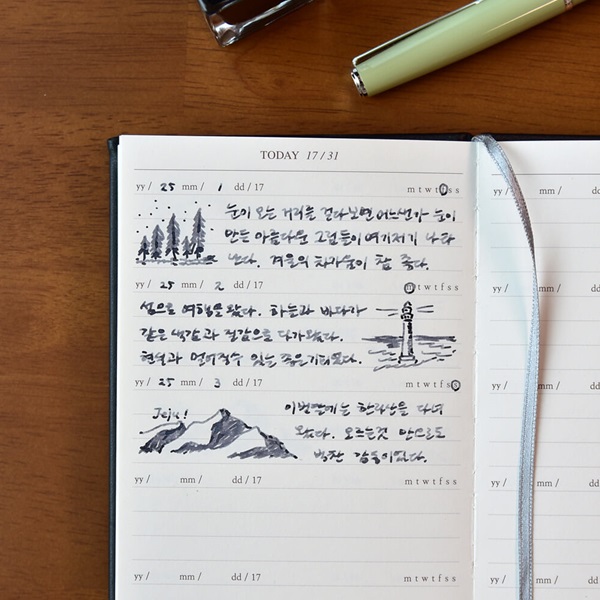 TODAY 17/31
yy / 25 mm / 1 dd / 17 m t w t f s s
눈이 오는 거리를 걷다보면 어느샌가 눈이
만든 아름다운 그림들이 여기저기 나타
난다. 겨울의 차가움이 참 좋다.
yy / 25 mm / 2 dd / 17 m t w t f s s
섬으로 여행을 왔다. 하늘과 바다가
같은 색감과 질감으로 다가왔다.
현실과 멀어질수 있는 좋은기회였다.
yy / 25 mm / 3 dd / 17 m t w t f s s
Jeju!
이번달에는 한라산을 다녀
왔다. 오르는것 만으로도
벅찬 감동이었다.
yy / mm / dd / 17 m t w t f s s
yy / mm / dd / 17 m t w t f s s
yy / mm /
yy / mm /
yy / mm /
yy / mm /
yy / mm /